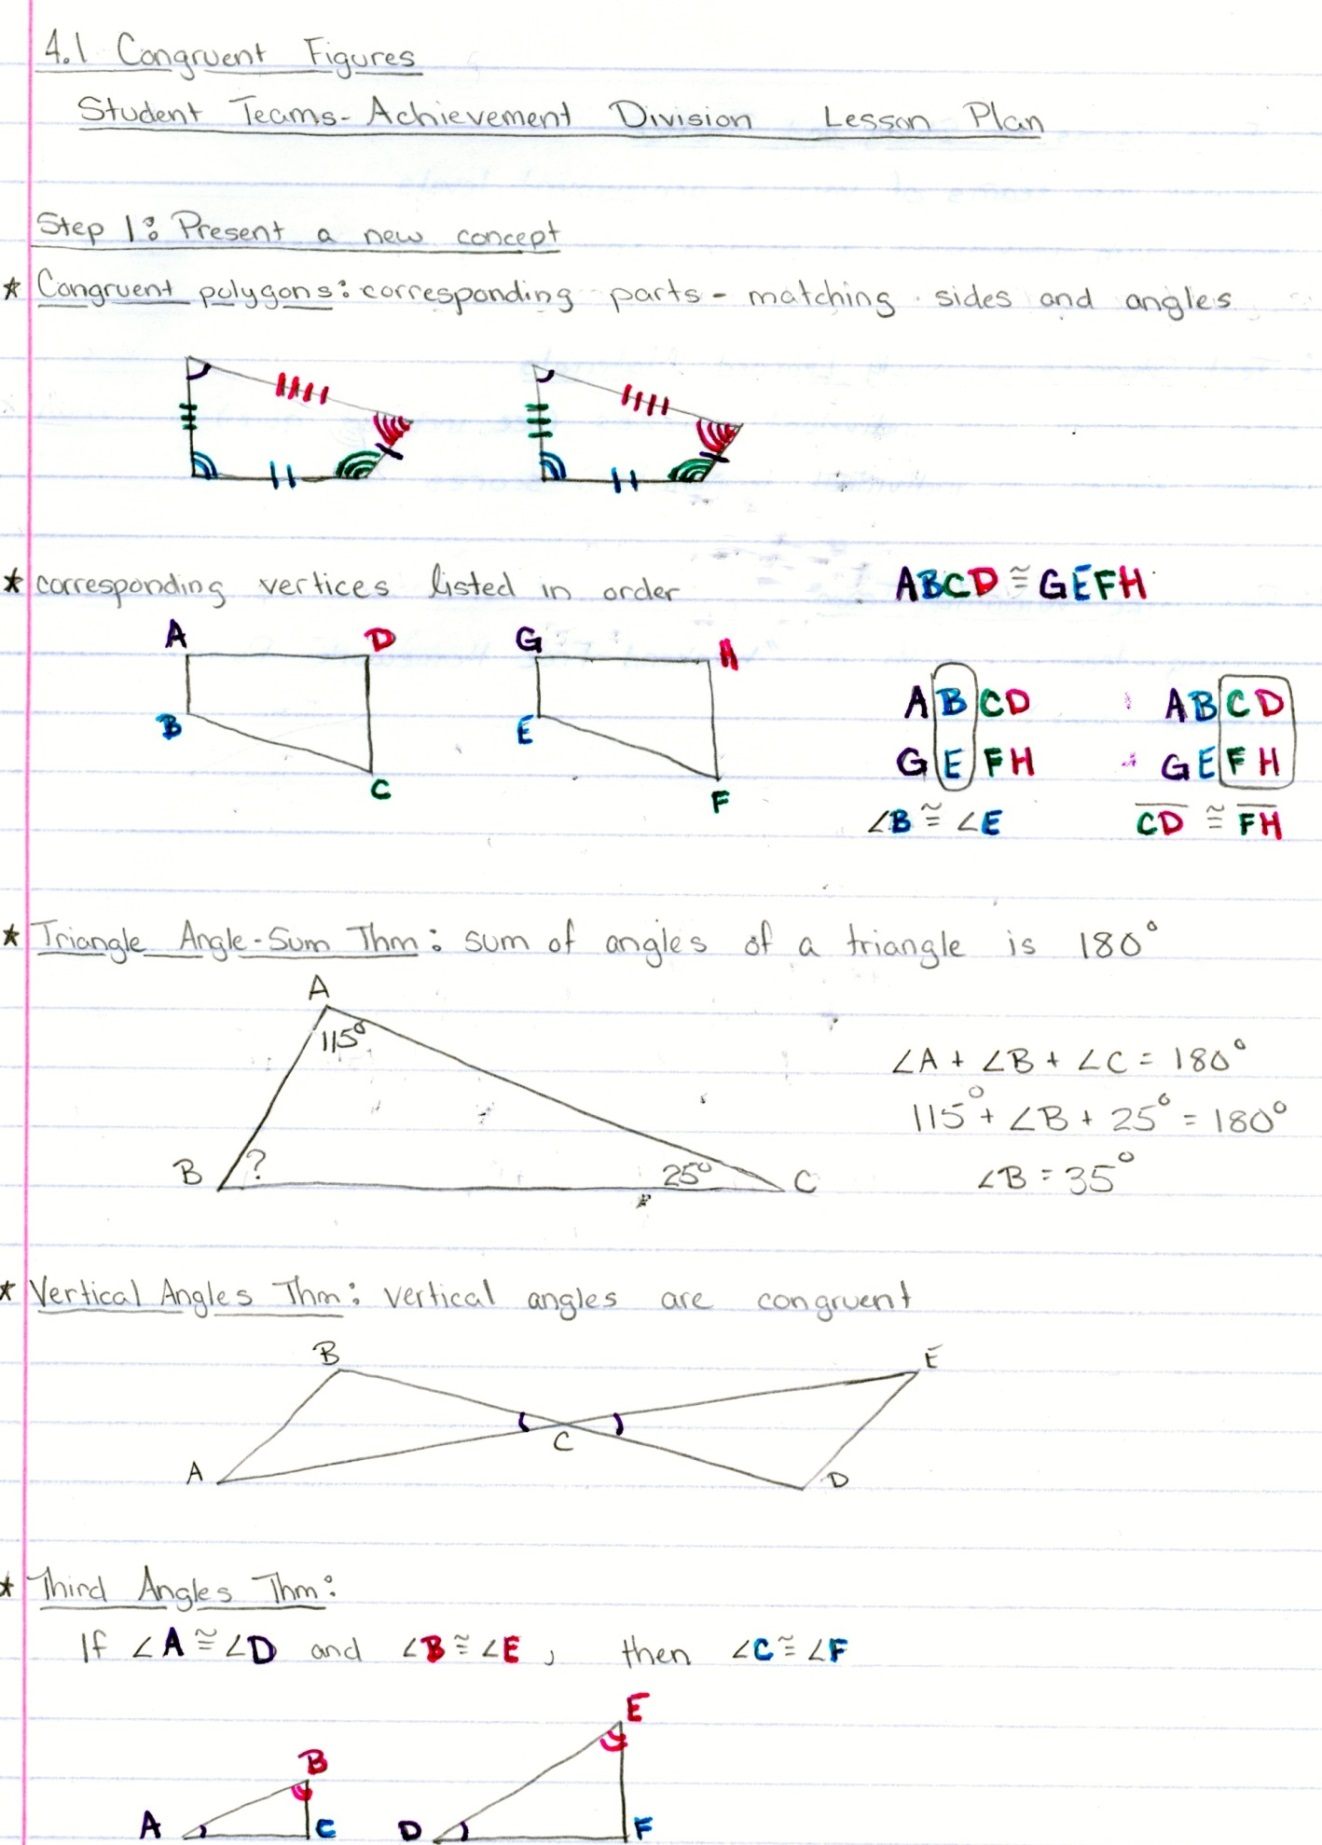 4.1 Congruent Figures
Student Teams-Achievement Division Lesson Plan
Step 1: Present a new concept
* Congruent polygons: corresponding parts - matching sides and angles
* corresponding vertices listed in order ABCD ≅ GEFH
A D G H
B E
C F
ABCD ABCD
GEFH GEFH
∠B ≅ ∠E CD ≅ FH
* Triangle Angle-Sum Thm: sum of angles of a triangle is 180°
A
115°
B ? 25° C
∠A + ∠B + ∠C = 180°
115° + ∠B + 25° = 180°
∠B = 35°
* Vertical Angles Thm: vertical angles are congruent
B E
C
A D
* Third Angles Thm:
If ∠A ≅ ∠D and ∠B ≅ ∠E, then ∠C ≅ ∠F
E
B
A C D F